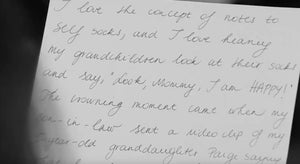 I love the concept of notes to
self socks, and I love hearing
my grandchildren look at their socks
and say, "Look, Mommy, I am HAPPY!"
The crowning moment came when my
-in-law sent a video clip of my
-year-old granddaughter Paige saying